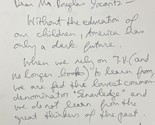 Dear Mr. Douglas Yocantz —
Without the education of
our children, America has
only a dark future.
When we rely on T.V. (and
no longer books) to learn from
we are fed the lowest common
denominator "knowledge" and
we do not learn from the
great thinkers of the past.